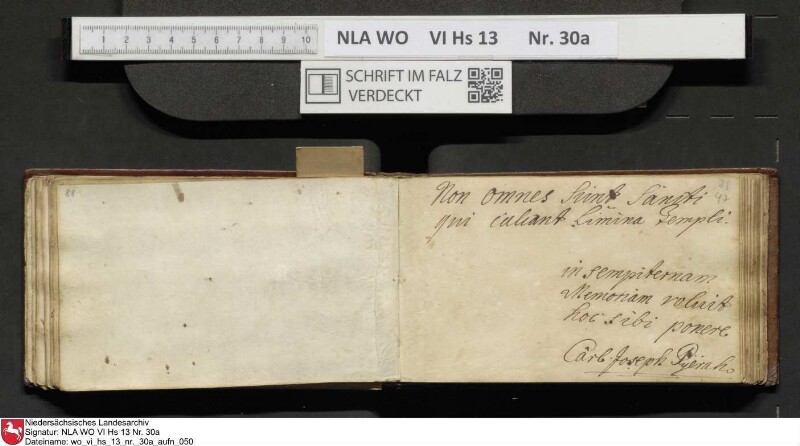 NLA WO VI Hs 13 Nr. 30a
0 1 2 3 4 5 6 7 8 9 10
SCHRIFT IM FALZ
VERDECKT
88
Non omnes sunt Sancti
qui calcant Limina Templi.
in sempiternam
Memoriam voluit
hoc sibi ponere
Carl Joseph
Niedersächsisches Landesarchiv
Signatur: NLA WO VI Hs 13 Nr. 30a
Dateiname: wo_vi_hs_13_nr._30a_aufn_050